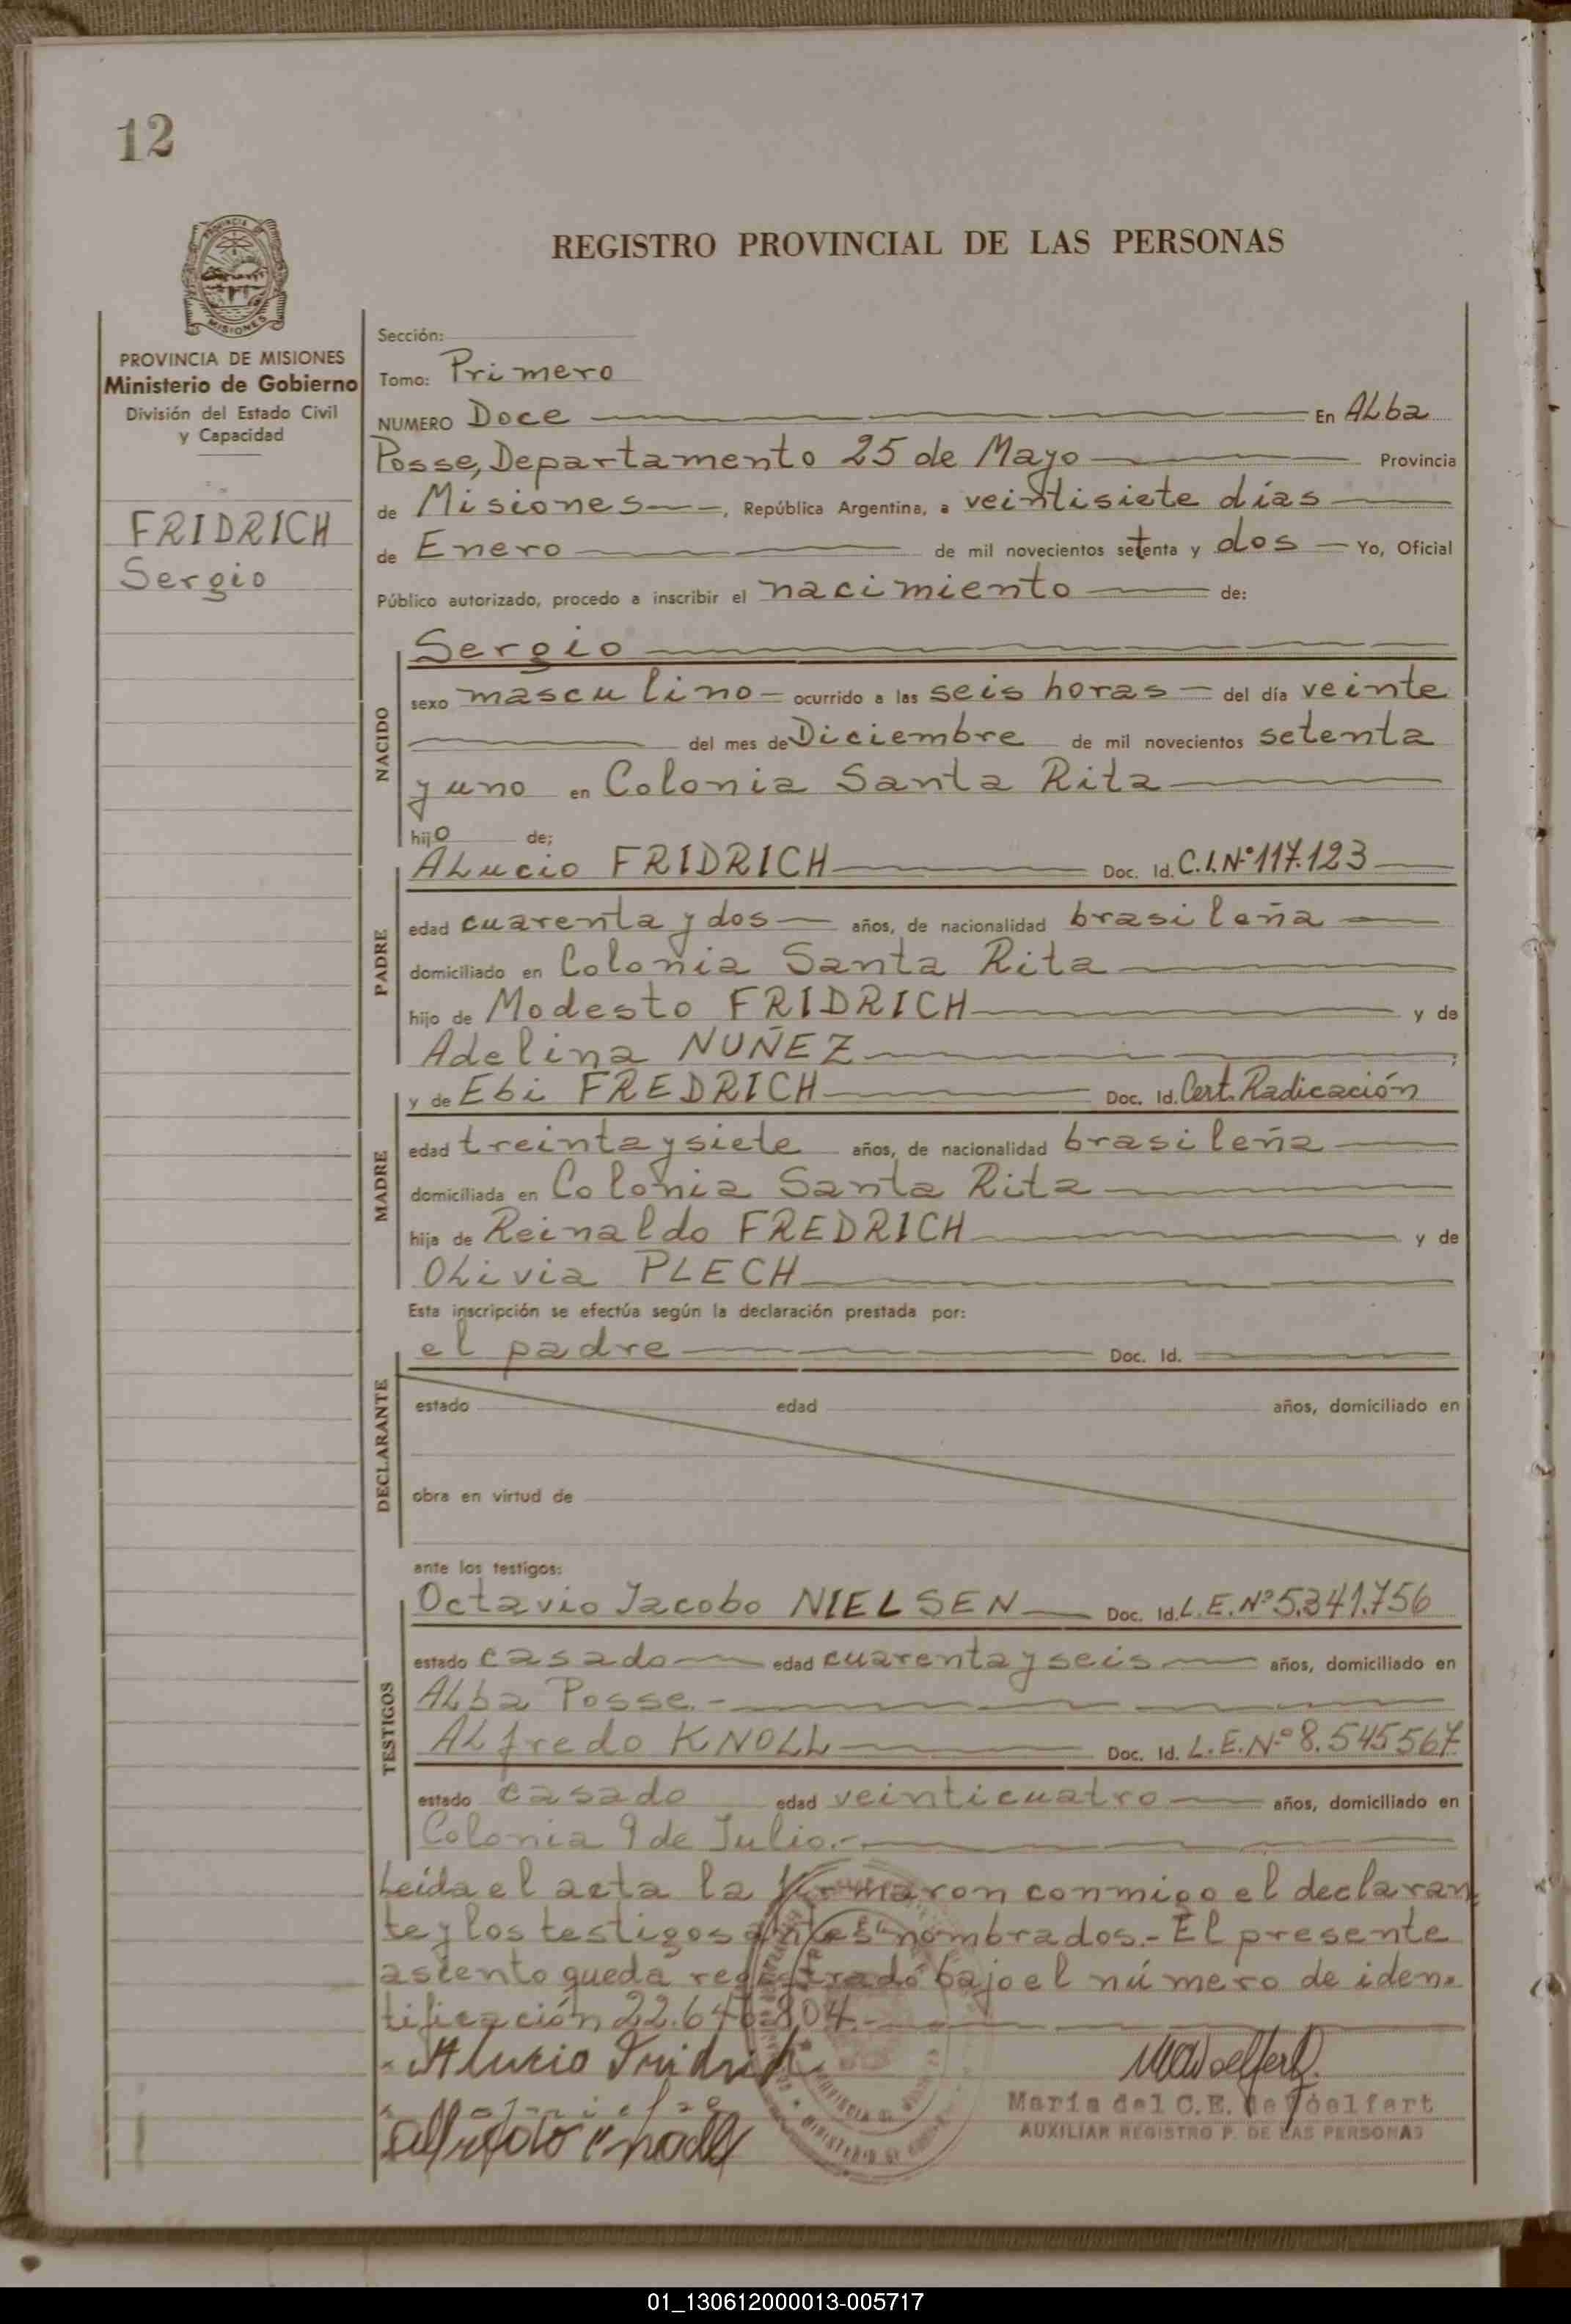 12
REGISTRO PROVINCIAL DE LAS PERSONAS
PROVINCIA
MISIONES
PROVINCIA DE MISIONES
Ministerio de Gobierno
División del Estado Civil
y Capacidad
FRIDRICH
Sergio
Sección:
Tomo: Primero
NUMERO Doce En ALba
Posse, Departamento 25 de Mayo Provincia
de Misiones, República Argentina, a veintisiete días
de Enero de mil novecientos setenta y dos Yo, Oficial
Público autorizado, procedo a inscribir el nacimiento de:
NACIDO
Sergio
sexo masculino ocurrido a las seis horas del día veinte
del mes de Diciembre de mil novecientos setenta
y uno en Colonia Santa Rita
hijo de;
PADRE
ALucio FRIDRICH Doc. Id. C.I.Nº 117.123
edad cuarenta y dos años, de nacionalidad brasileña
domiciliado en Colonia Santa Rita
hijo de Modesto FRIDRICH y de
Adelina NUÑEZ;
MADRE
y de Ebi FREDRICH Doc. Id. Cert. Radicación
edad treinta y siete años, de nacionalidad brasileña
domiciliada en Colonia Santa Rita
hija de Reinaldo FREDRICH y de
OLivia PLECH
Esta inscripción se efectúa según la declaración prestada por:
DECLARANTE
el padre Doc. Id.
estado edad años, domiciliado en
obra en virtud de
ante los testigos:
TESTIGOS
Octavio Jacobo NIELSEN Doc. Id. L.E.Nº 5.341.756
estado casado edad cuarenta y seis años, domiciliado en
ALba Posse.-
ALfredo KNOLL Doc. Id. L.E.Nº 8.545567
estado casado edad veinticuatro años, domiciliado en
Colonia 9 de Julio.-
Leída el acta la firmaron conmigo el declaran
te y los testigos antes nombrados.- El presente
asiento queda registrado bajo el número de iden-
tificación 22.640.804.-
Alucio Fridrich
María del C.E. de Voelfert
AUXILIAR REGISTRO P. DE LAS PERSONAS
01_130612000013-005717